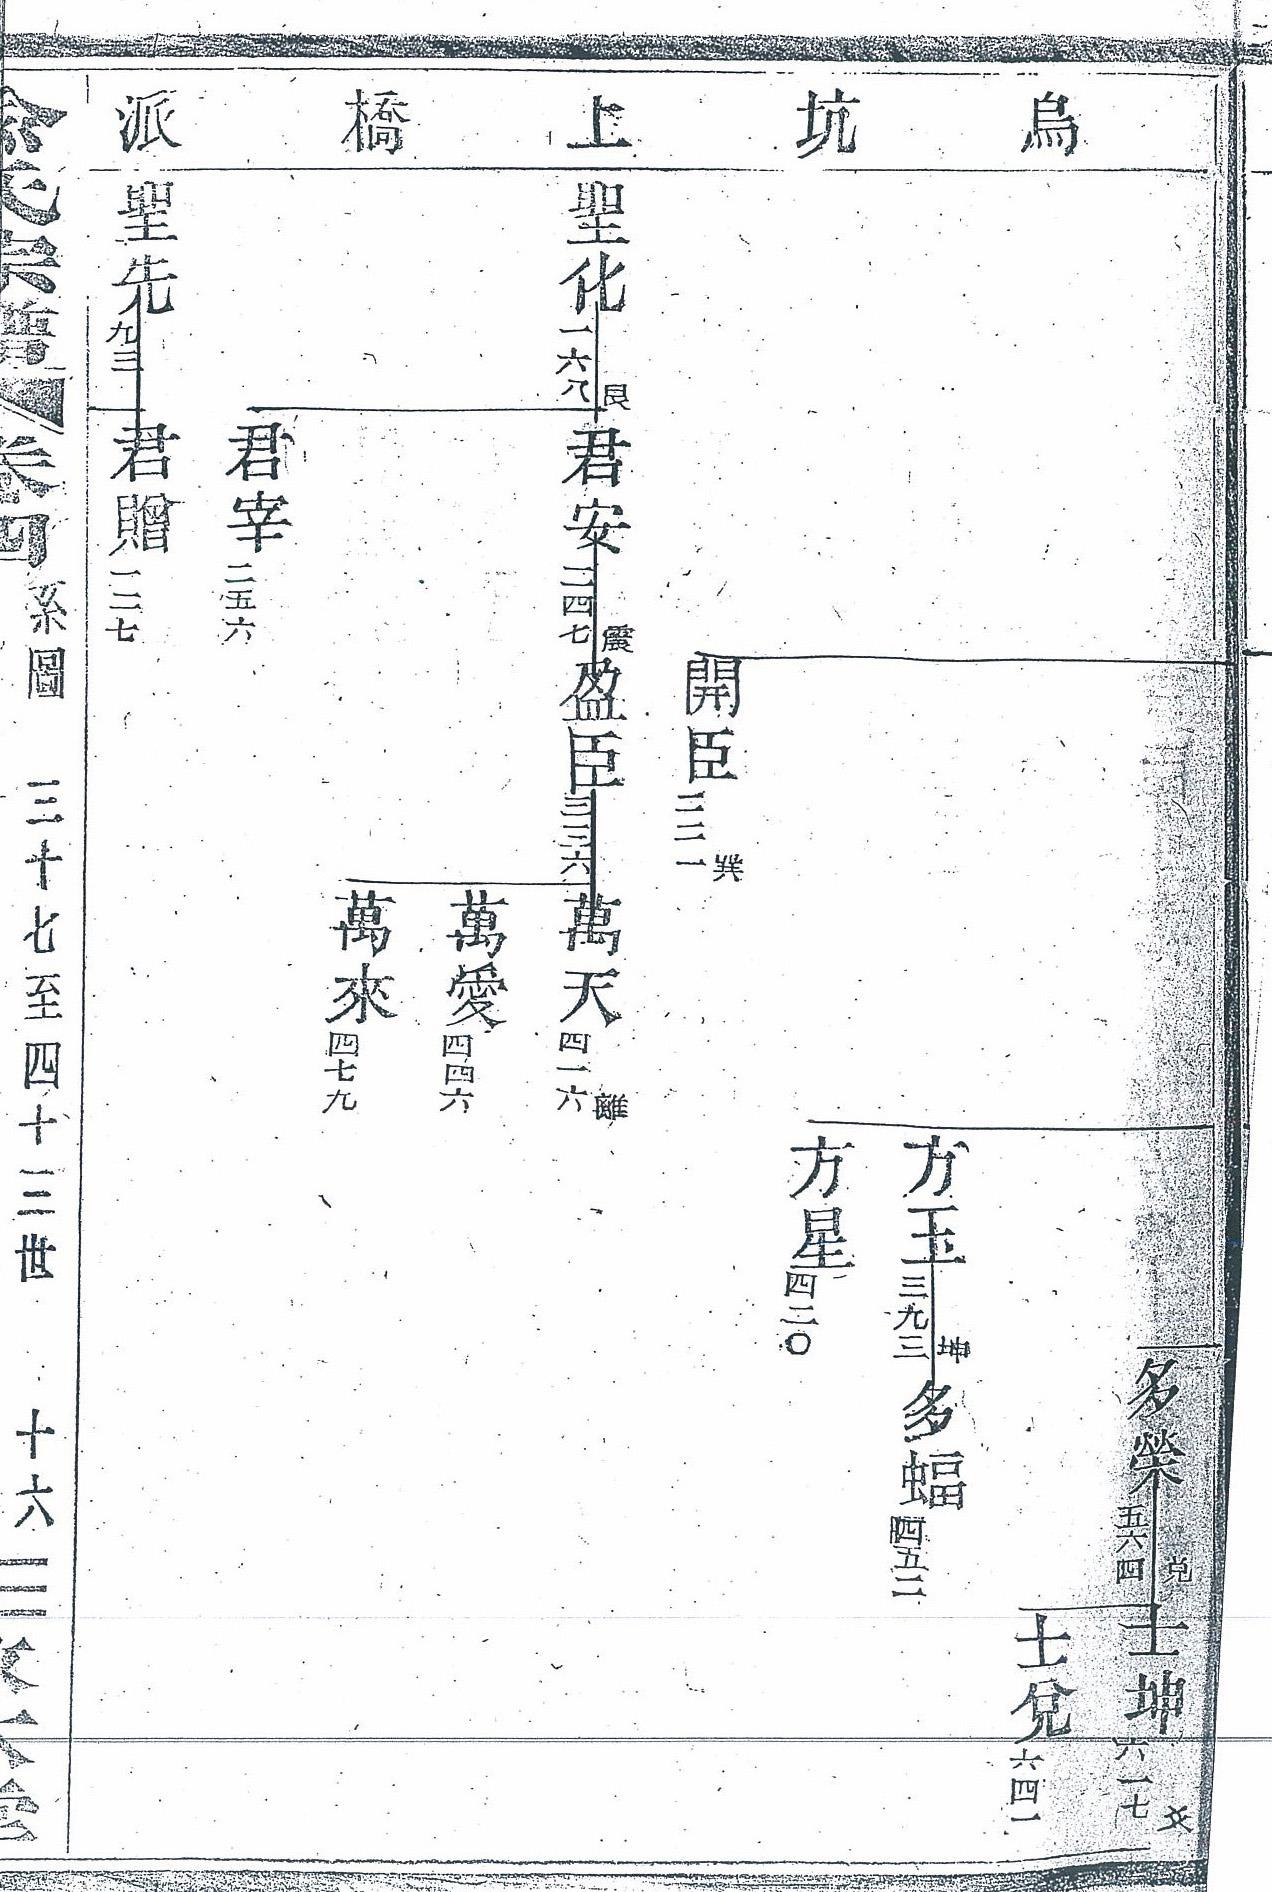 烏坑上橋派
多榮
五六四
兑
士坤
六一七
爻
士兌
六四一
方玉
三九三
坤
多蝠
四五二
方星
四二〇
開臣
三二一
巽
聖化
一六八
艮
君安
二四七
震
盈臣
三三六
萬天
四一六
離
萬愛
四四六
萬來
四七九
君宰
二五六
聖先
九三
君贈
一二七
余氏宗譜
卷四
系圖
三十七至四十三世
十六